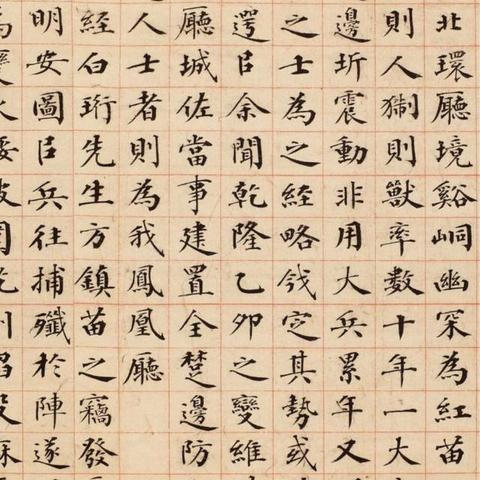 北環廳境谿峒幽罙為紅苗
則人猘則獸率數十年一大
邊圻震動非用大兵累年又
之士為之經略定其勢或
遌㠯余聞乾隆乙卯之變維
廳城佐當事建置全楚邊防
人士者則為我鳳凰廳
經白珩先生方鎮苗之竊發
明安圖㠯兵往捕殲於陣遂